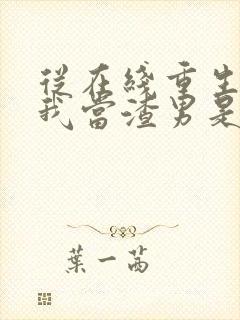 從在綫重生
我當渣男是
葉一茜